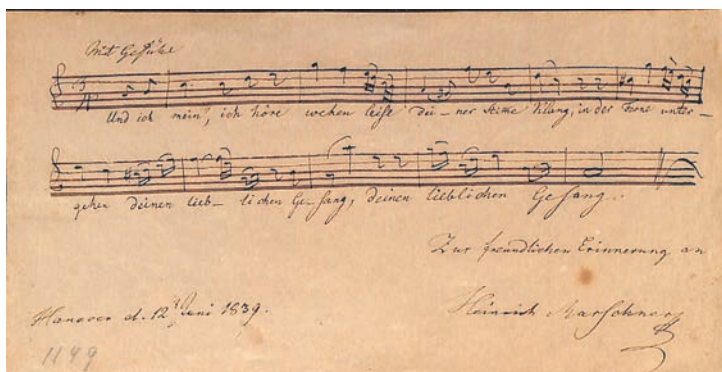 Mit Gefühle
Und ich mein', ich höre wehen leise dei-ner Stimme Klang, in der Ferne unter-
gehen deinen lieb-lichen Ge-sang, deinen lieblichen Gesang.
Zur freundlichen Erinnerung an
Hanover d. 12t Juni 1839.
Heinrich Marschner
1149